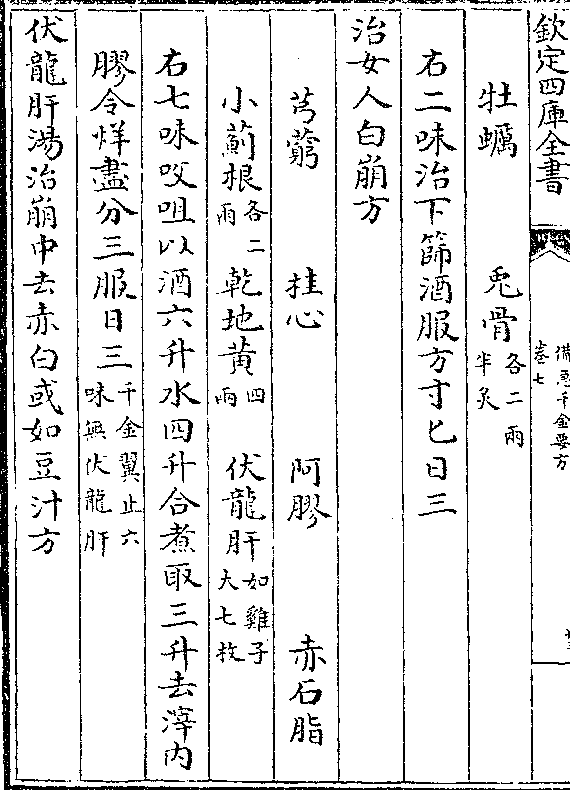 欽定四庫全書
備急千金要方
卷七
牡蠣 兎骨各二兩半炙
右二味治下篩酒服方寸匕日三
治女人白崩方
芎藭 桂心 阿膠 赤石脂
小薊根各二兩 乾地黃四兩 伏龍肝如雞子大七枚
右七味㕮咀以酒六升水四升合煮取三升去滓内
膠令烊盡分三服日三千金翼止六味無伏龍肝
伏龍肝湯治崩中去赤白或如豆汁方